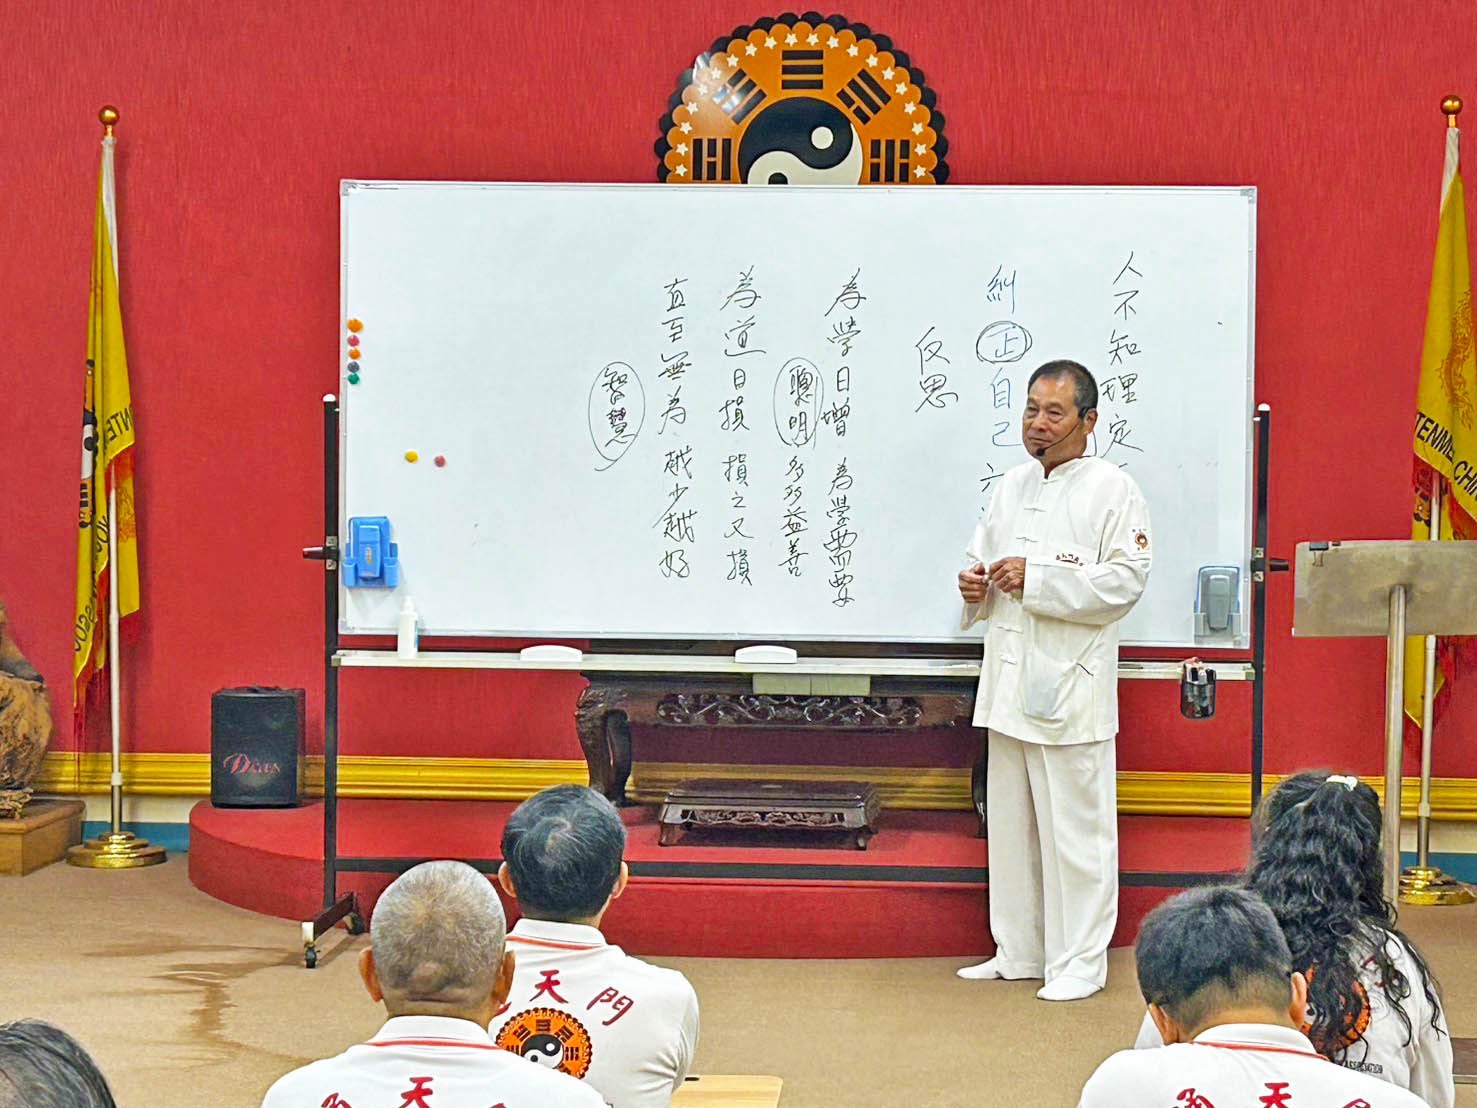 人不知理定
糾正自己六
反思
為學日增 為學需要
聰明 多多益善
為道日損 損之又損
直至無為 越少越好
智慧
天門
天
天